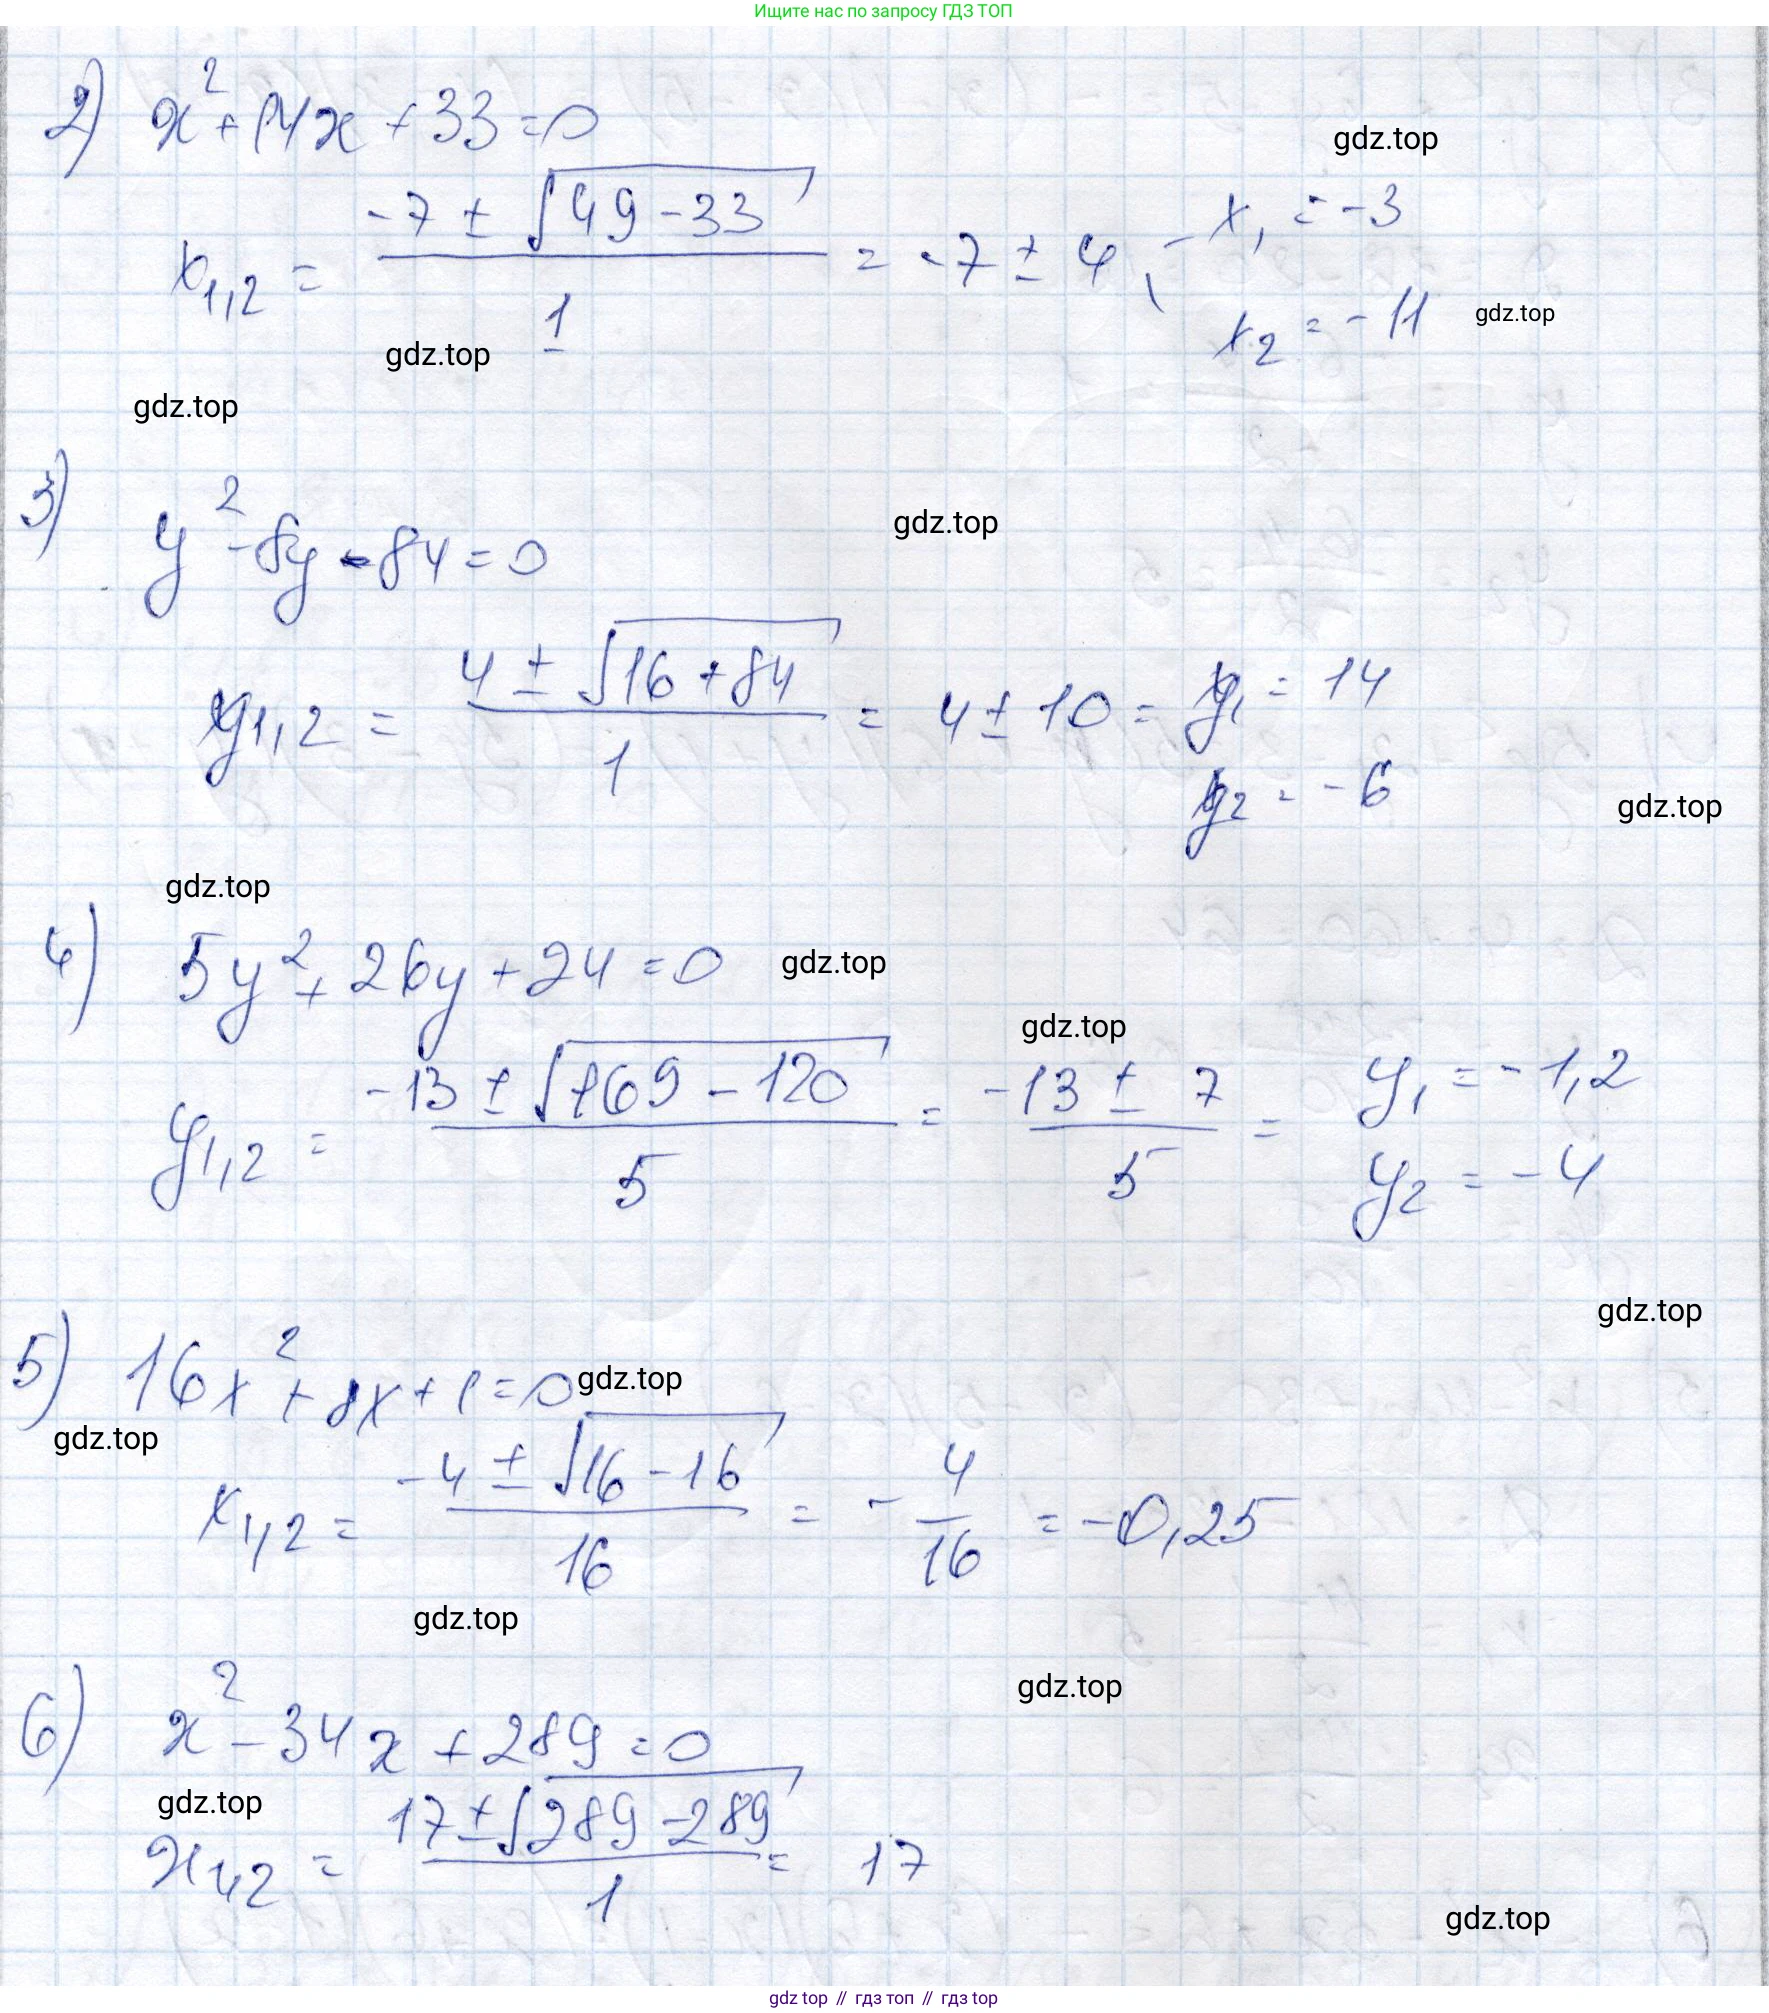 Ищите нас по запросу ГДЗ ТОП
2) x² + 14x + 33 = 0
gdz.top
x₁,₂ = (-7 ± √(49 - 33))/1 = -7 ± 4
x₁ = -3
x₂ = -11
gdz.top
gdz.top
gdz.top
3) y² - 8y - 84 = 0
gdz.top
y₁,₂ = (4 ± √(16 + 84))/1 = 4 ± 10 =
y₁ = 14
y₂ = -6
gdz.top
gdz.top
4) 5y² + 26y + 24 = 0
gdz.top
gdz.top
y₁,₂ = (-13 ± √(169 - 120))/5 = (-13 ± 7)/5 =
y₁ = -1,2
y₂ = -4
gdz.top
5) 16x² + 8x + 1 = 0
gdz.top
gdz.top
x₁,₂ = (-4 ± √(16 - 16))/16 = -4/16 = -0,25
gdz.top
gdz.top
6) x² - 34x + 289 = 0
gdz.top
x₁,₂ = (17 ± √(289 - 289))/1 = 17
gdz.top
gdz top // гдз топ // гдз top